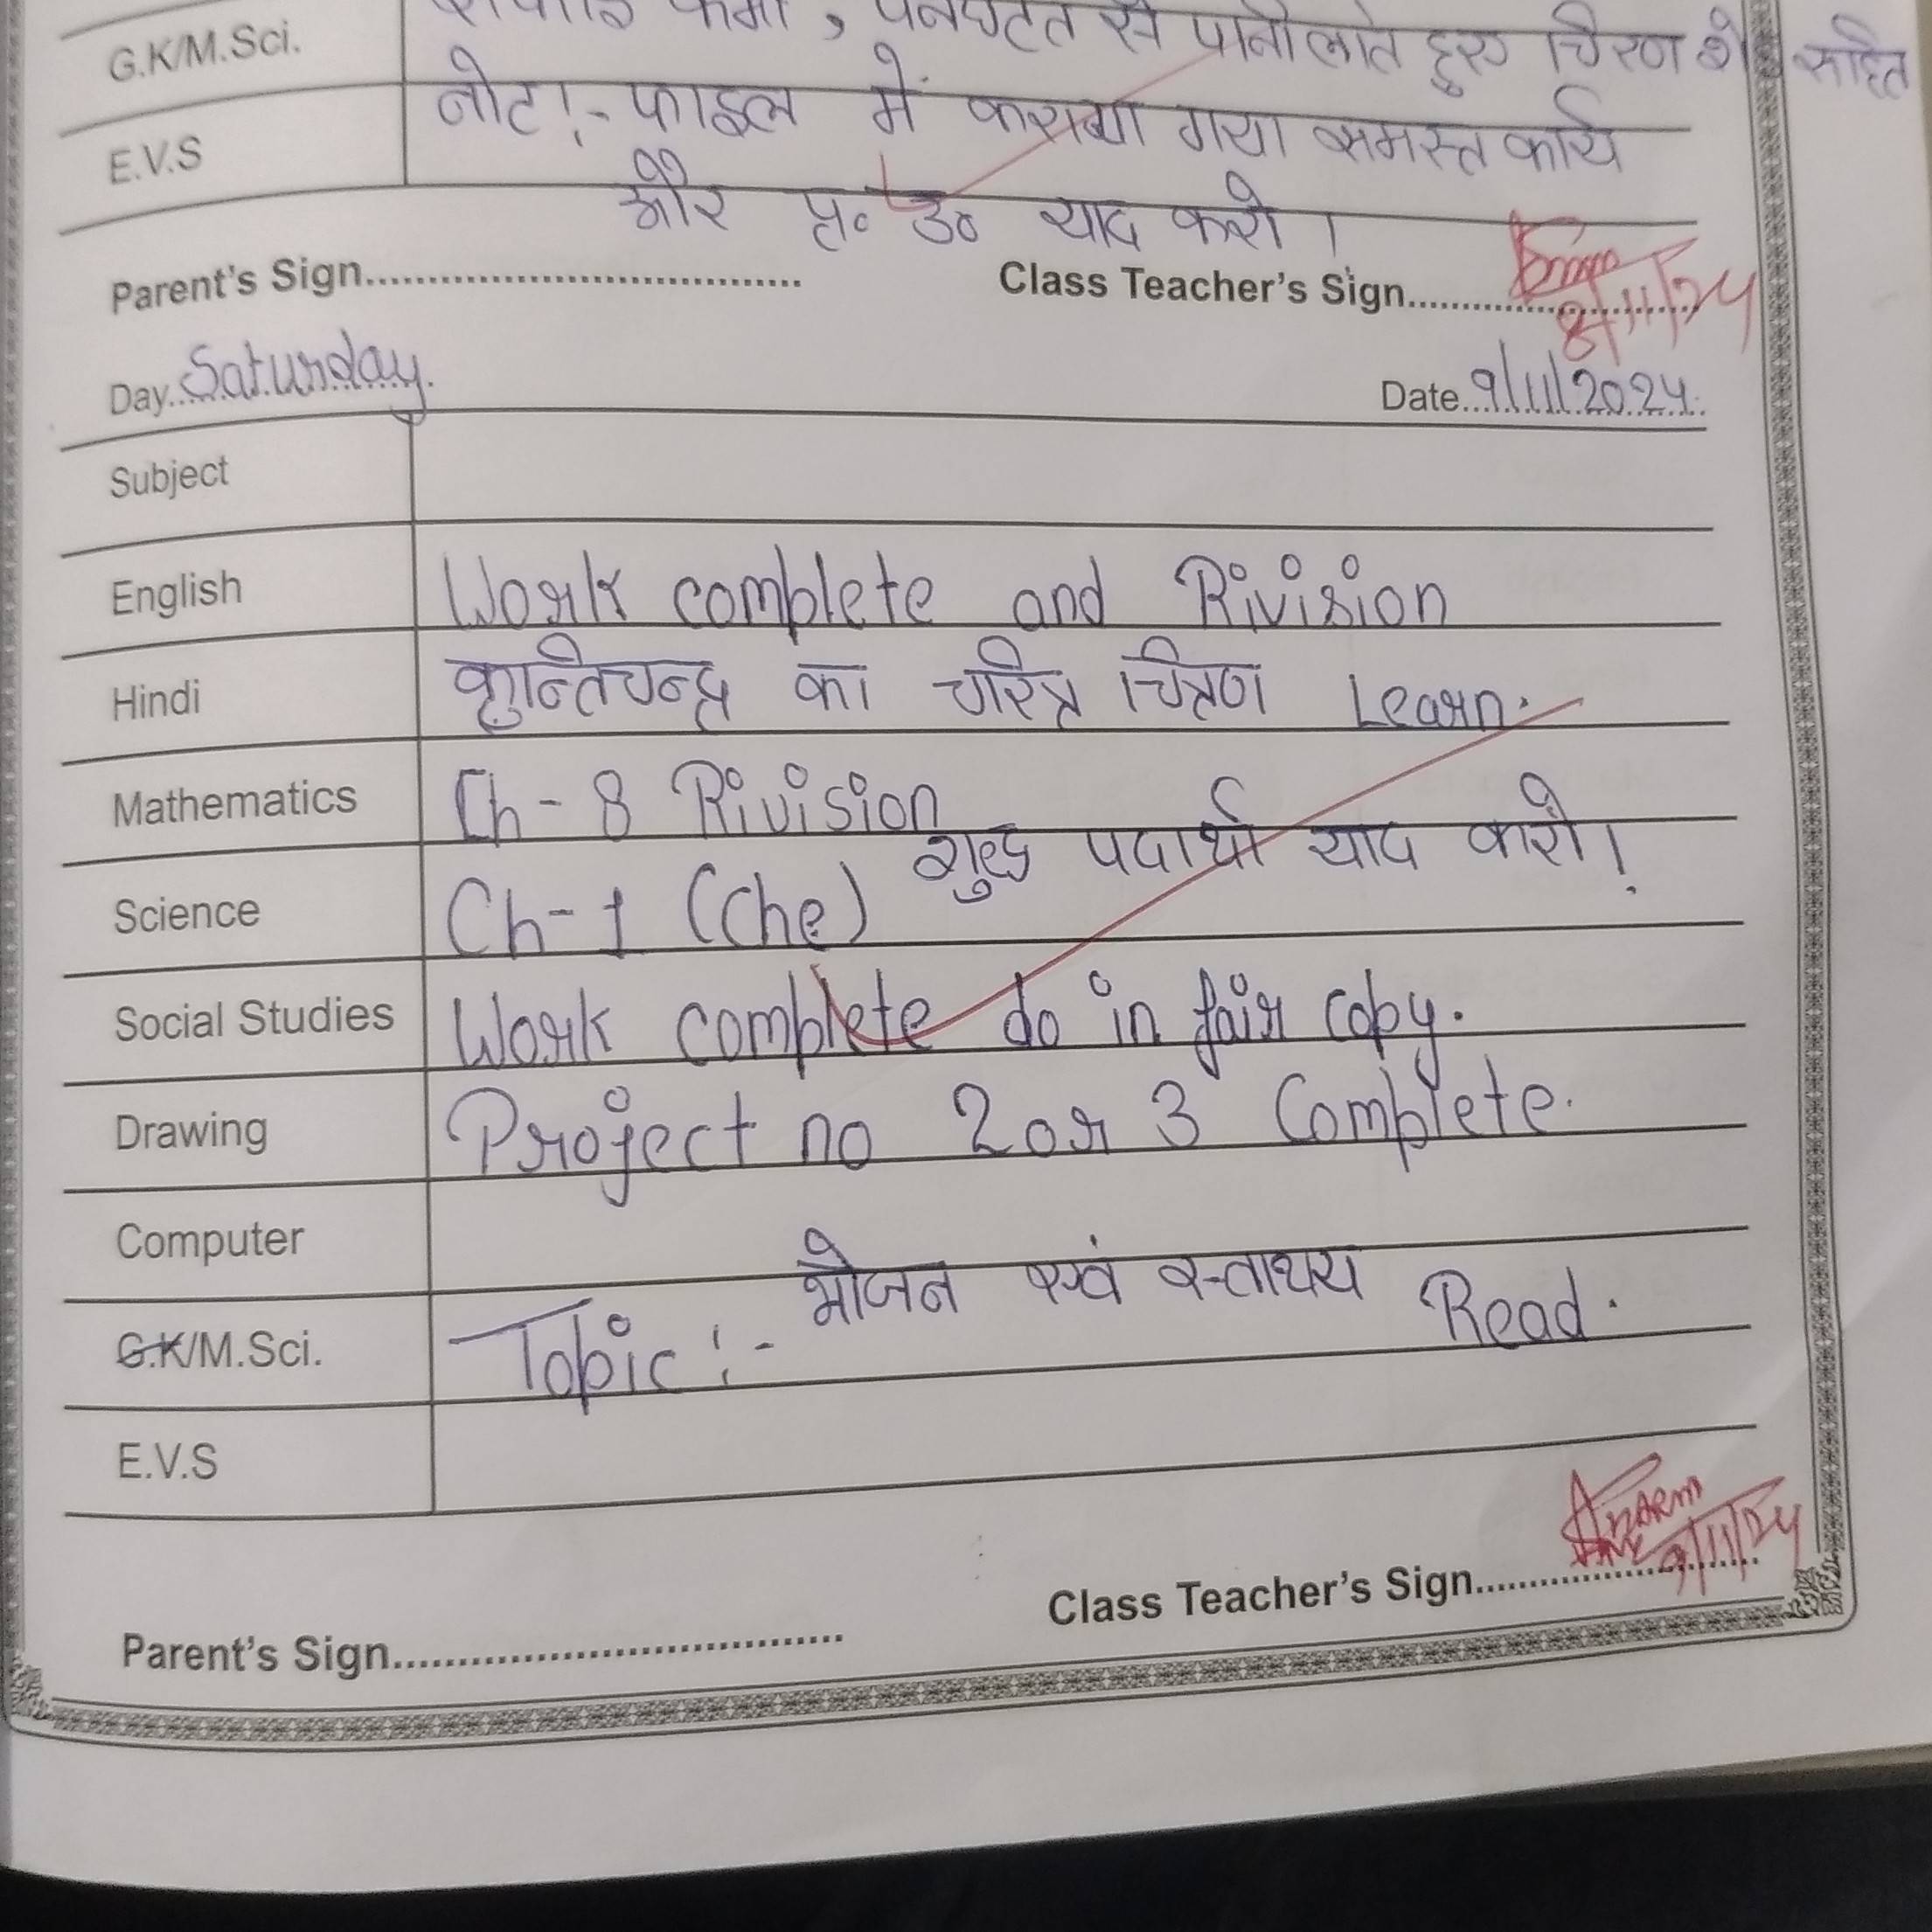 G.K/M.Sci. , पनघट से पानी लाते हुए सहित
E.V.S नोट:- फाइल में कराया गया समस्त कार्य
और प्र० उ० याद करो।
Parent's Sign........ Class Teacher's Sign........ 8/11/24
Day..Saturday. Date..9/11/2024.
Subject
English Work complete and Rivision
Hindi कान्तिचन्द्र का चरित्र चित्रण Learn.
Mathematics Ch-8 Rivision
Science Ch-1 (Che) शुद्ध पदार्थो याद करो!
Social Studies Work complete do in fair copy.
Drawing Project no 2 or 3 Complete.
Computer
G.K/M.Sci. Topic :- भोजन एवं स्वास्थय Read.
E.V.S
Class Teacher's Sign........ 9/11/24
Parent's Sign........